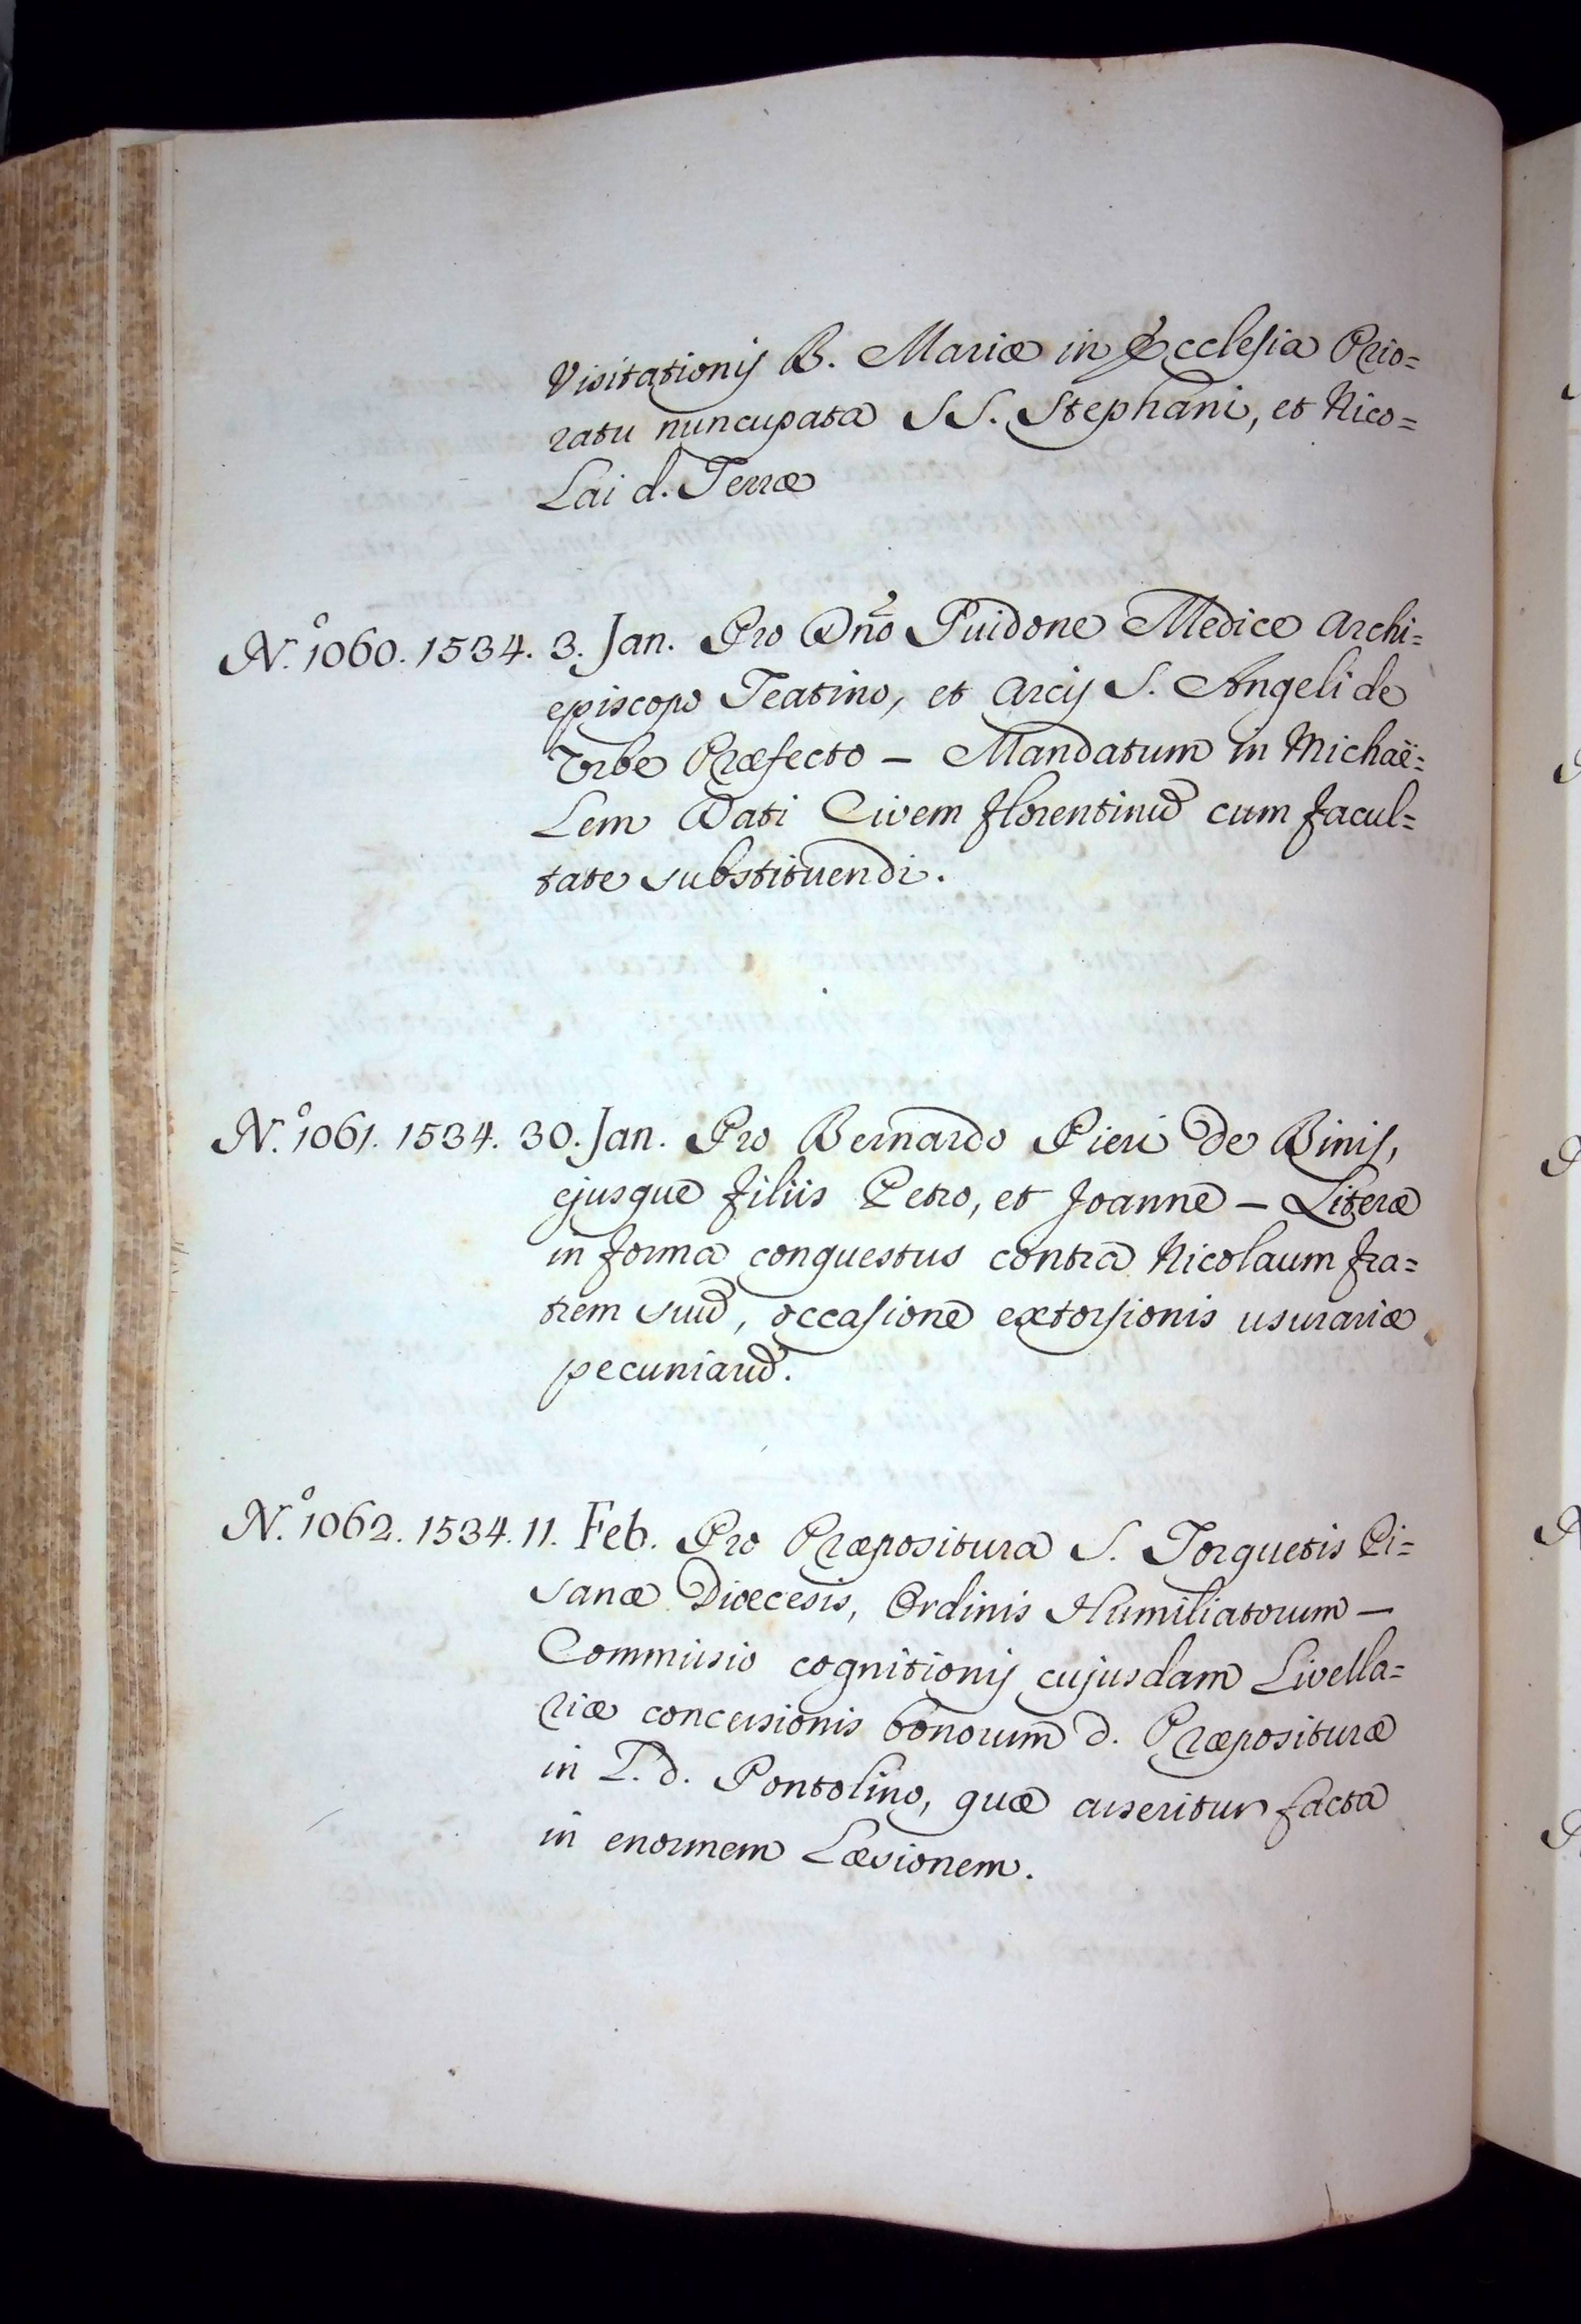 Visitationis B. Mariæ in Ecclesia Prio=
ratu nuncupata SS. Stephani, et Nico=
lai d. Terræ
N.º 1060. 1534. 3. Jan. Pro Dño Guidone Medice Archi=
episcopo Teatino, et Arcis S. Angeli de
Urbe Præfecto – Mandatum in Michaë=
lem Dati Civem Florentinũ cum facul=
tate substituendi.
N.º 1061. 1534. 30. Jan. Pro Bernardo Pieri de Binis,
ejusque filiis Petro, et Joanne – Literæ
in forma conquestus contra Nicolaum fra=
trem suũ, occasione extorsionis usurariæ
pecuniarũ.
N.º 1062. 1534. 11. Feb. Pro Præpositura S. Torquetis Pi=
sanæ Diœcesis, Ordinis Humiliatorum –
Commissio cognitionis cujusdam Livella=
riæ concessionis bonorum d. Præposituræ
in L. d. Pontolino, quæ asseritur facta
in enormem Læsionem.